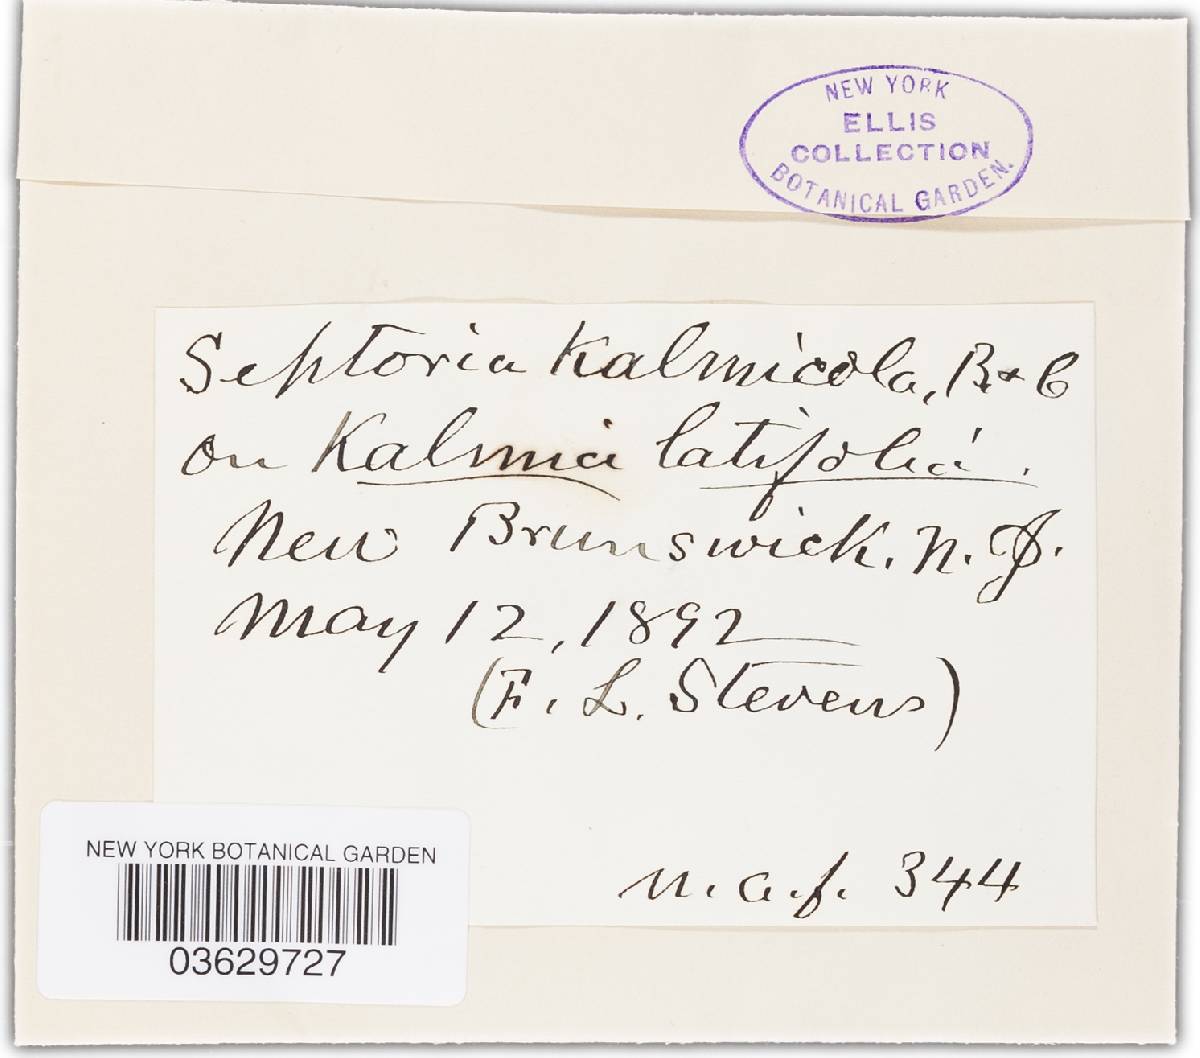 NEW YORK
ELLIS
COLLECTION
BOTANICAL GARDEN.
Septoria Kalmicola, B+C
on Kalmia latifolia.
New Brunswick. N. J.
May 12, 1892
(F. L. Stevens)
n.a.f. 344
NEW YORK BOTANICAL GARDEN
03629727